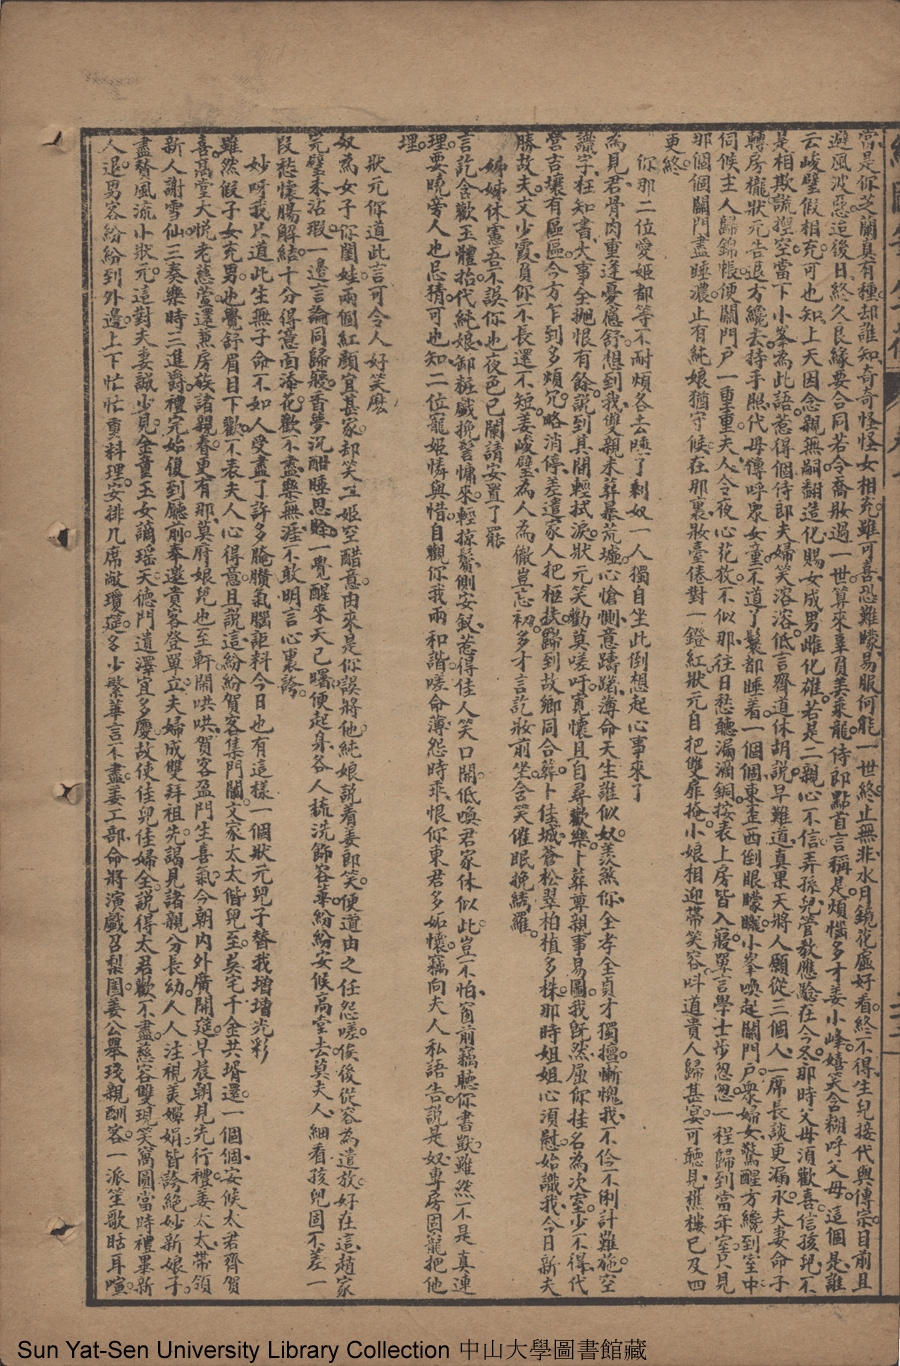 當是你芝蘭真有種却誰知奇奇怪怪女相充雖可喜恐難矇易服何能一世終止無非水月鏡花虛好看終不得生兒接代與傳宗目前且
避風波惡這後日終久良緣要合同若今喬妝過一世算來辜負美乘龍侍郎點首言稱是煩惱多才姜小峰嬉笑含糊呼父母這個是誰
云峻璧假相充可也知上天因念親無嗣翻造化賜女成男雌化雄若是二親心不信弄孫兒管教應驗在今冬那時父母湏歡喜信孩兒不
是相欺謊揑空當下小峯為此語惹得個侍郎夫婦笑溶溶低言齊道休胡說早難道真果天將人願從三個人一席長談更漏永夫妻命子
轉房櫳狀元告退方纔去持手照代母傳呼衆女童不道了鬟都睡着一個個東歪西倒眼矇矓小峯喚起關門戶衆婦女驚醒方纔到室中
伺候主人歸錦帳便關門戶一重重夫人今夜心花放不似那往日愁聽漏滴銅按表上房皆入寢單言學士步怱怱一程歸到當年室只見
那個個關門盡睡濃止有純娘猶守候在那裏妝臺倦對一鐙紅狀元自把雙扉掩小娘相迎帶笑容呌道貴人歸甚宴可聽見樵樓已及四
更終
你那二位愛姬都等不耐煩各去睡了剩奴一人獨自坐此倒想起心事來了
為見君骨肉重逢憂慮舒想到我雙親未葬暴荒墟心愴惻意躊躇薄命天生誰似奴羨煞你全孝全貞才獨擅慚愧我不伶不俐計難施空
識字枉知書大事全拋恨有餘說到其間輕拭淚狀元笑勸莫嗟吁寬懷且自尋歡樂卜葬尊親事易圖我旣然屈你挂名為次室少不得代
營吉壤有區區今方乍到多煩冗略消停差遣家人把柩扶歸到故鄉同合葬卜佳城蒼松翠柏植多株那時姐姐心湏慰始識我今日新夫
勝故夫丈少霞負你不長還不短姜峻璧為人為徹豈忘初多才言訖妝前坐含笑催眠挽繡羅
娣娣休憲吾不誤你也夜色已闌請安置了罷
言訖含歡玉體抬代純娘卸粧戲挽誓慵來輕掠鬢側安釵惹得佳人笑口開低喚君家休似此豈不怕窗前竊聽你書獃雖然不是真連
理要曉旁人也忌猜可也知二位寵姬憐與惜自觀你我兩和諧嗟命薄怨時乖恨你東君多妬懷竊向夫人私語告說是奴專房固寵把他
埋
狀元你道此言可令人好笑麽
奴為女子你閨娃兩個紅顏宜甚家却笑三姬空醋意由來是你誤將他純娘說看姜郎笑便道由之任怨嗟俟後從容為遣放好在這趙家
完璧未沾瑕一邊言論同歸寢香夢沉酣睡思賖一覺醒來天已曙便起身各人梳洗飾容華紛紛安候高堂去莫夫人細看孩兒固不差一
段愁懷腸解結十分得意面添花歡不盡樂無涯不敢明言心裏誇
妙呀我只道此生無子命不如人受盡了許多腌臢氣惱詎料今日也有這樣一個狀元兒子替我增增光彩
雖然假子女充男也覺舒眉目下歡不表夫人心得意且說這紛紛賀客集門闌文家太太偕兒至吳宅千金共壻還一個個安候太君齊賀
喜高堂大悅老慈萱還兼房族諸親眷更有那莫府娘兒也至軒鬧哄哄賀客盈門生喜氣今朝内外廣開筵早晨朝見先行禮姜太太帶領
新人謝雪仙三奏樂時三進爵禮完始復到廳前奉邀貴客登單立夫婦成雙拜祖先謁見諸親分長幼人人注視美嬋娟皆誇絕妙新娘子
盡贊風流小狀元這對夫妻誠少見金童玉女謫瑶天德門遺澤宜多慶故使佳兒佳婦全說得太君歡不盡慈容雙現笑窩圓當時禮畢新
人退男客紛紛到外邊上下忙忙重料理安排几席敞瓊筵多少繁華言不盡姜工部命將演戲召梨園姜公舉琖親酬客一派笙歌聒耳喧
Sun Yat-Sen University Library Collection 中山大學圖書館藏